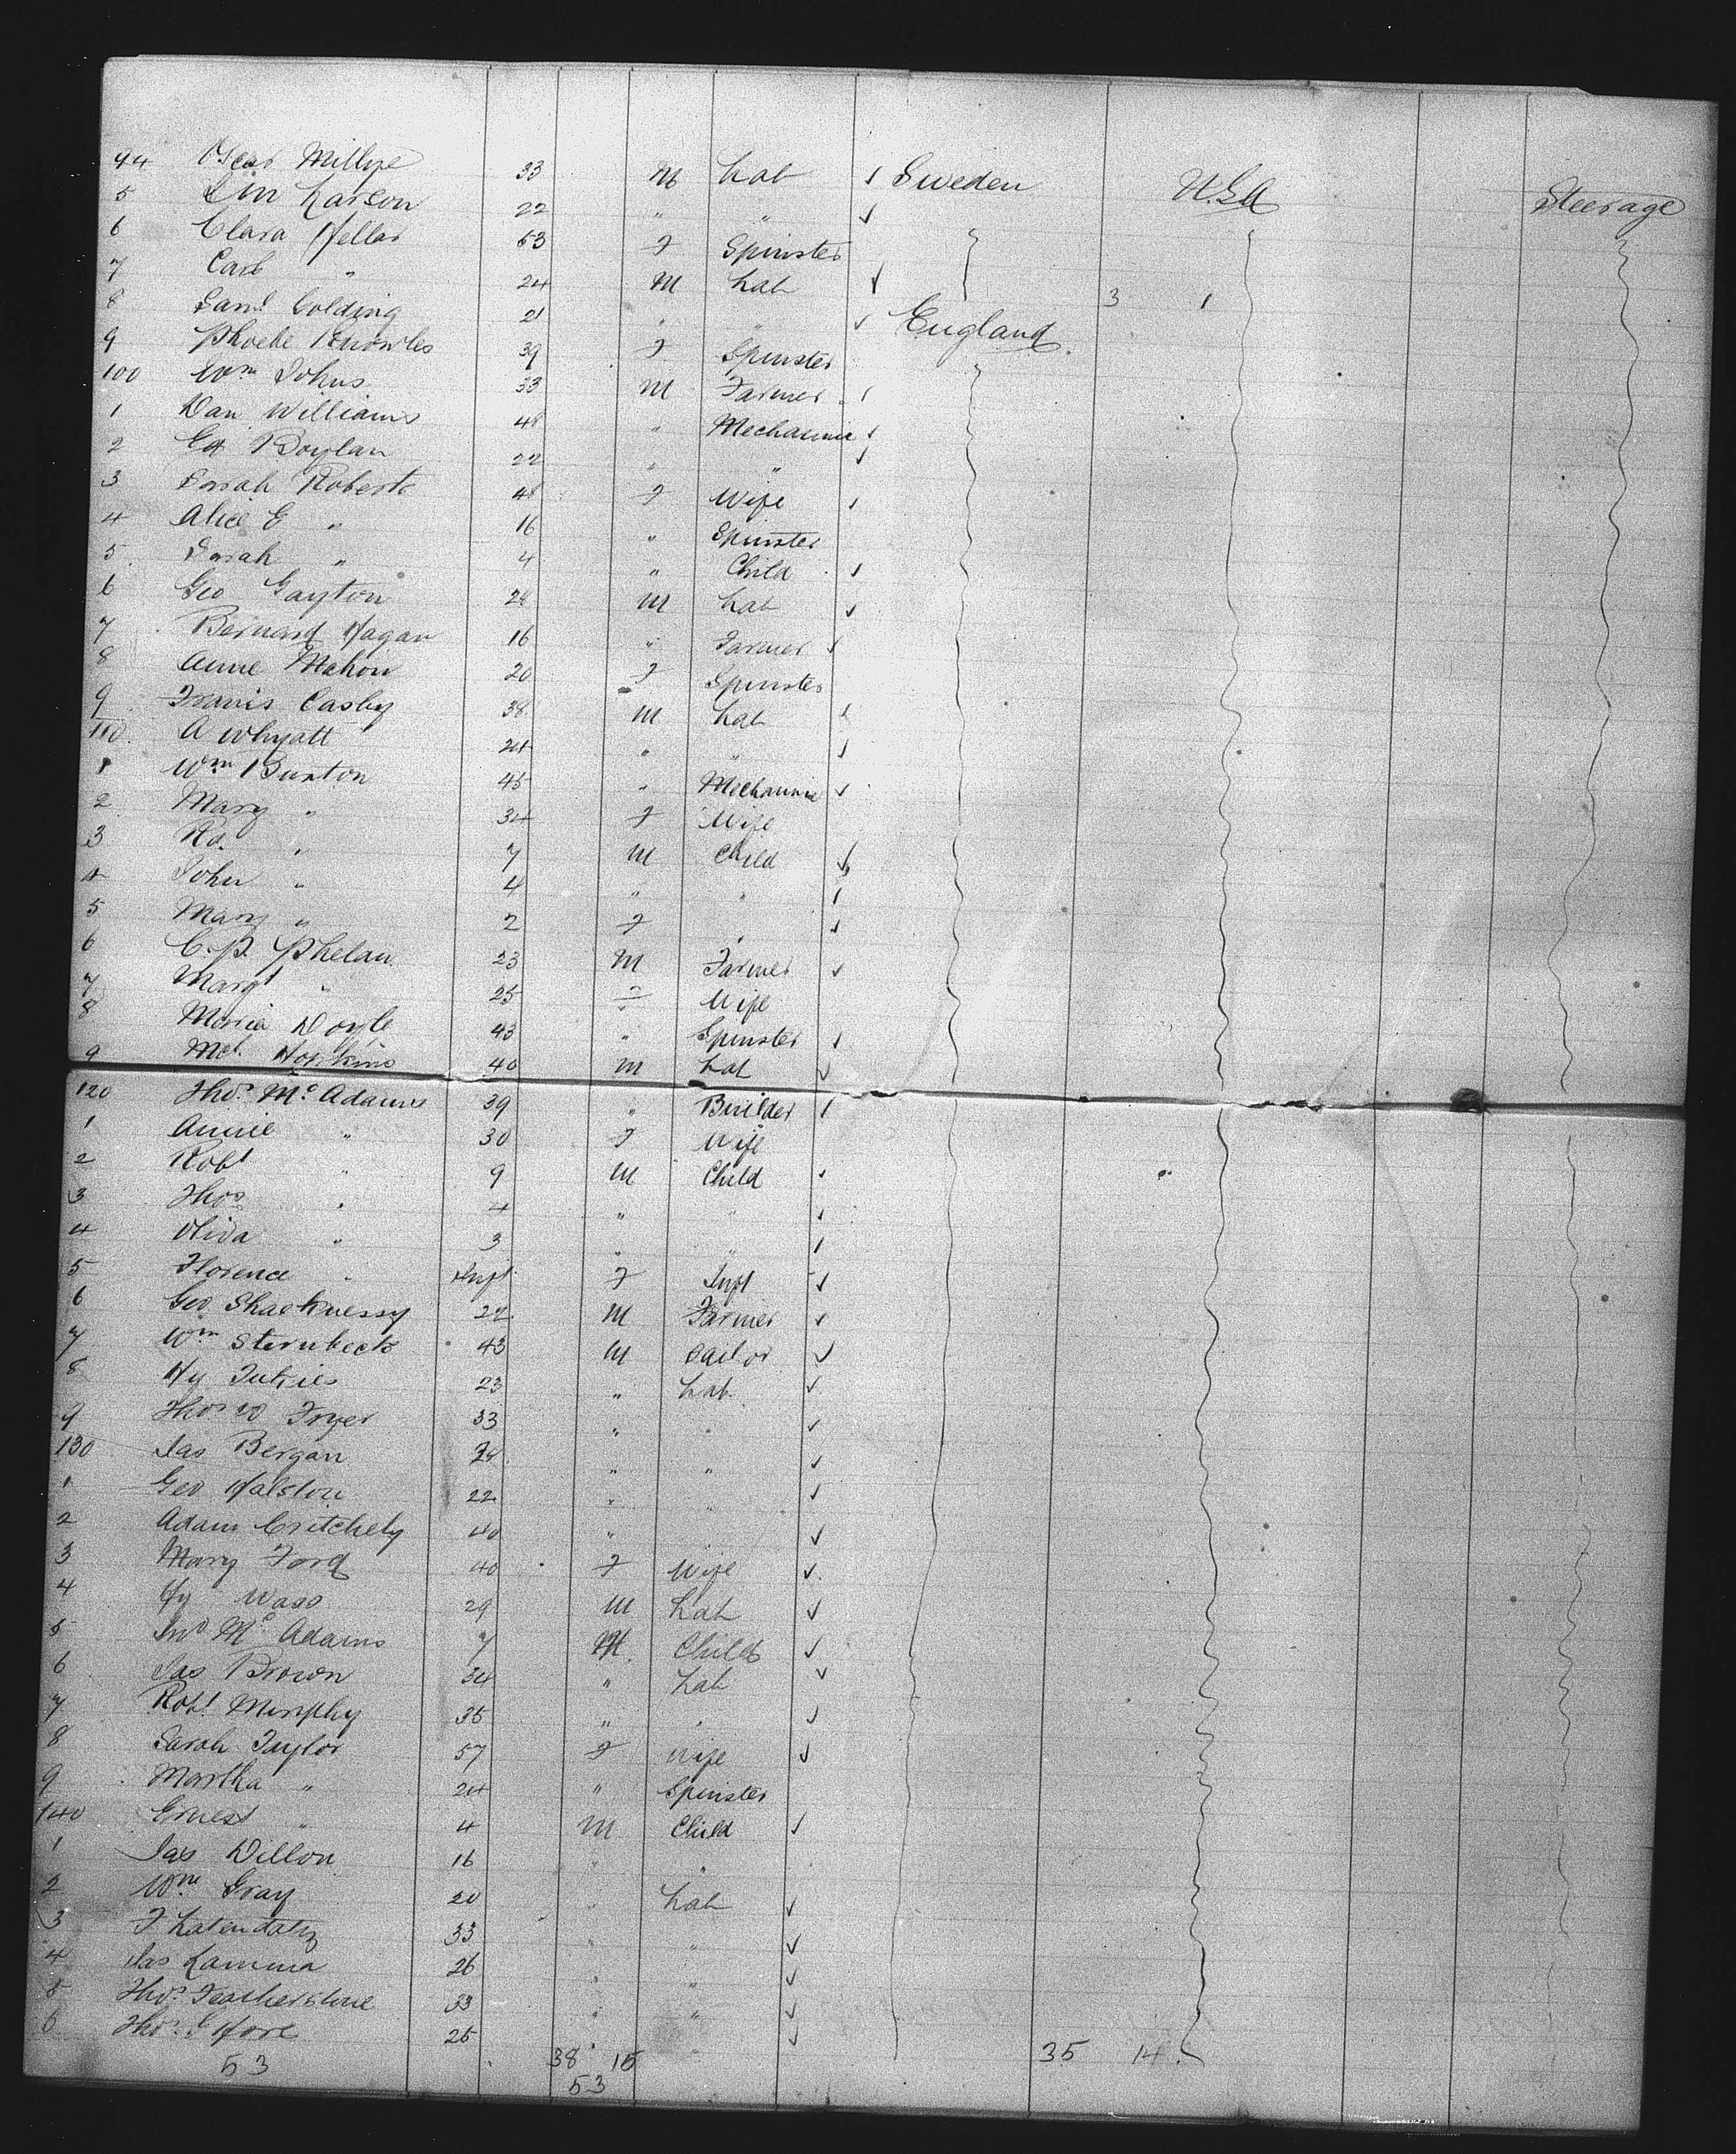 94 Oscar Millye 33 M Lab ✓ Sweden U.S.A Steerage
5 Larson 22 " " ✓
6 Clara Hellar 53 F Spinster
7 Carl " 24 M Lab ✓ 3 1
8 Saml Golding 21 " " ✓ England
9 Phoebe Knowles 39 F Spinster
100 Wm Johns 33 M Farmer ✓
1 Dan Williams 48 " Mechanic ✓
2 Boylan 22 " " ✓
3 Sarah Roberts 48 F Wife ✓
4 Alice E " 16 " Spinster
5 Sarah " 4 " Child ✓
6 Geo Gayton 28 M Lab ✓
7 Bernard Hagan 16 " Farmer ✓
8 Annie Mahon 20 F Spinster
9 Francis Casby 38 M Lab ✓
110 A Whyatt 24 " " ✓
1 Wm Buxton 45 " Mechanic ✓
2 Mary " 34 F Wife
3 Rd. " 7 M Child ✓
4 John " 4 " " ✓
5 Mary " 2 F " ✓
6 C. P. Phelan 23 M Farmer ✓
7 Margt " 25 F Wife
8 Maria Doyle 43 " Spinster ✓
9 Mcl. Hopkins 40 M Lab ✓
120 Thos. McAdams 39 " Builder ✓
1 Annie " 30 F Wife
2 Robt " 9 M Child ✓
3 Thos " 4 " " ✓
4 Oliva " 3 " " ✓
5 Florence " Inft F Inft ✓
6 Geo Shacknessy 22 M Farmer ✓
7 Wm Sternbeck 43 M Sailor ✓
8 Hy 23 " Lab. ✓
9 Thos W Fryer 33 " " ✓
130 Jas Bergan 24 " " ✓
1 Geo Halston 22 " " ✓
2 Adam Critchely 40 " " ✓
3 Mary Ford 40 F Wife ✓
4 Hy Wass 29 M Lab ✓
5 Jno McAdams 7 M. Child ✓
6 Jas Brown 34 " Lab ✓
7 Robt Murphy 35 " " ✓
8 Sarah Taylor 57 F Wife ✓
9 Martha " 24 " Spinster
140 Ernest " 4 M Child ✓
1 Jas Dillon 16 " "
2 Wm Gray 20 " Lab ✓
3 33 " " ✓
4 Jas Lamma 26 " " ✓
5 Thos. Featherstone 33 " " ✓
6 Thos. G Hore 25 " ✓
53 38 15 35 14
53